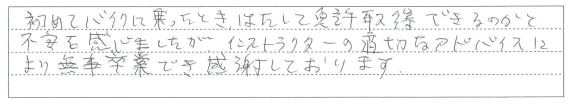 初めてバイクに乗ったとき、はたして免許取得できるのかと
不安を感じましたが インストラクターの適切なアドバイスに
より無事卒業でき感謝しております.